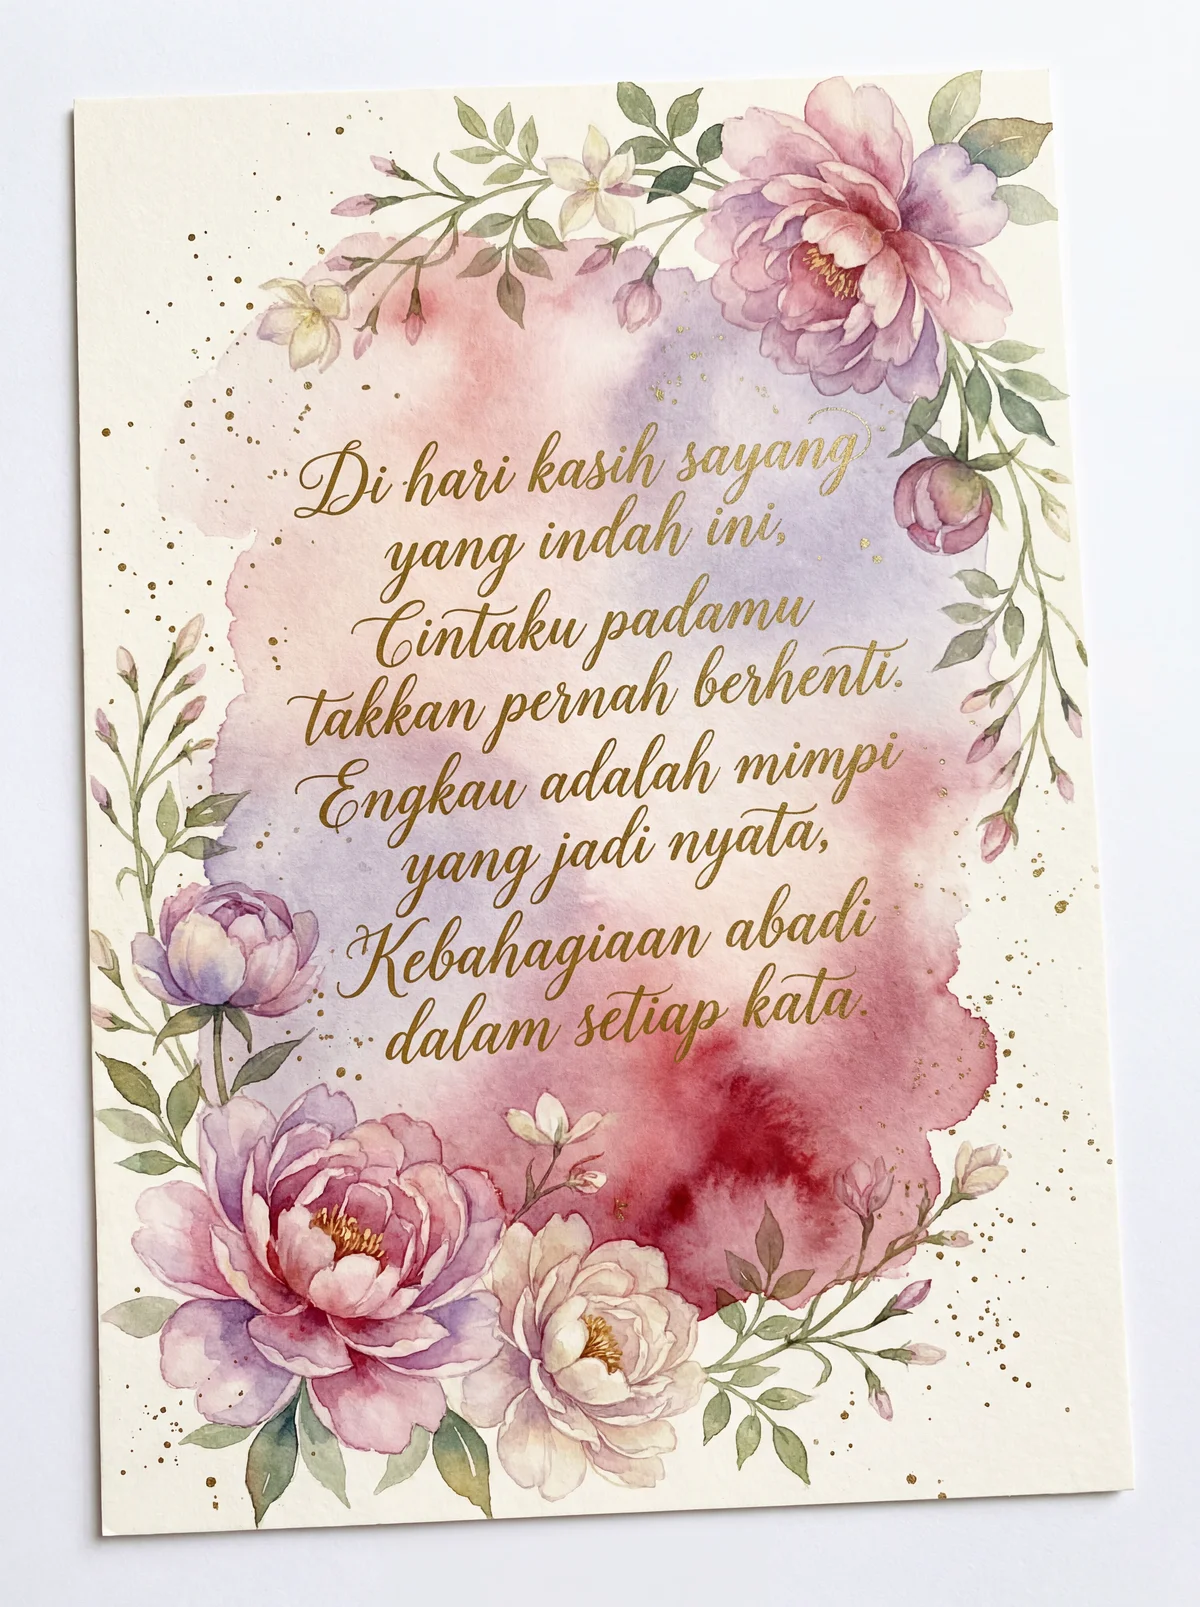 Di hari kasih sayang
yang indah ini,
Cintaku padamu
takkan pernah berhenti.
Engkau adalah mimpi
yang jadi nyata,
Kebahagiaan abadi
dalam setiap kata.